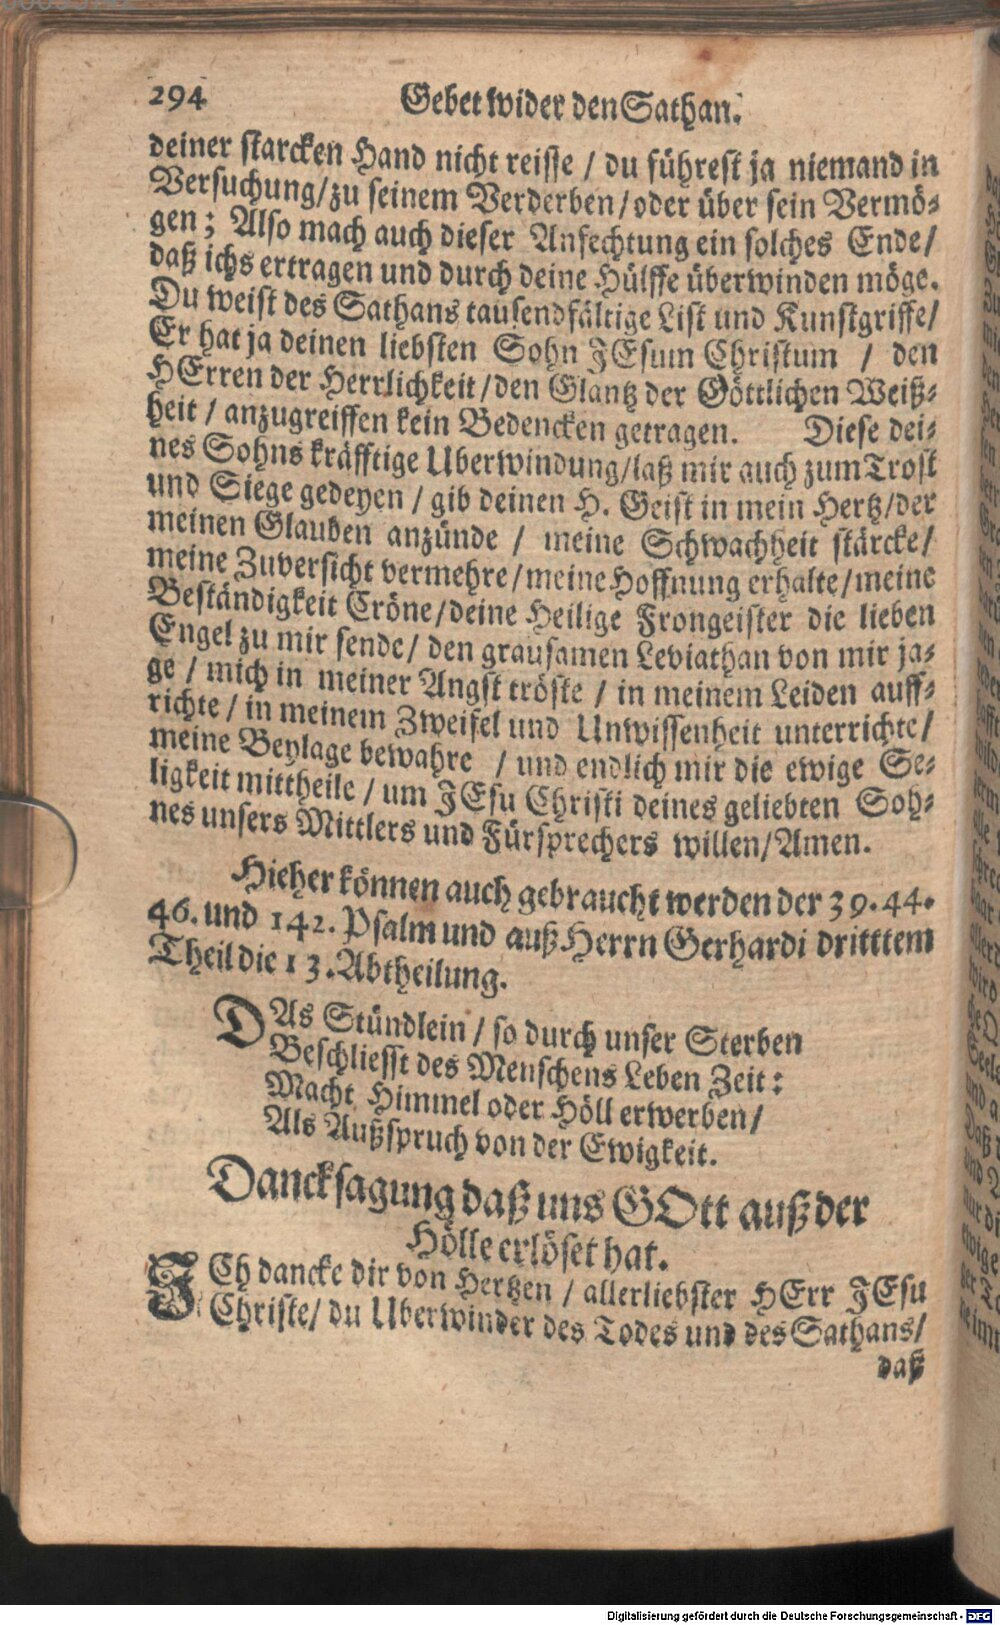 294 Gebet wider den Sathan.
deiner starcken Hand nicht reisse / du führest ja niemand in
Versuchung/zu seinem Verderben/oder über sein Vermö-
gen; Also mach auch dieser Anfechtung ein solches Ende/
daß ichs ertragen und durch deine Hülffe überwinden möge.
Du weist des Sathans tausendfältige List und Kunstgriffe/
Er hat ja deinen liebsten Sohn JEsum Christum / den
HErren der Herrlichkeit/den Glantz der Göttlichen Weiß-
heit / anzugreiffen kein Bedencken getragen. Diese dei-
nes Sohns kräfftige Uberwindung/laß mir auch zum Trost
und Siege gedeyen / gib deinen H. Geist in mein Hertz/der
meinen Glauben anzünde / meine Schwachheit stärcke/
meine Zuversicht vermehre/meine Hoffnung erhalte/meine
Beständigkeit Cröne/deine Heilige Frongeister die lieben
Engel zu mir sende/ den grausamen Leviathan von mir ja-
ge / mich in meiner Angst tröste / in meinem Leiden auff-
richte / in meinem Zweifel und Unwissenheit unterrichte/
meine Beylage bewahre / und endlich mir die ewige Se-
ligkeit mittheile / um JEsu Christi deines geliebten Soh-
nes unsers Mittlers und Fürsprechers willen/Amen.
Hieher können auch gebraucht werden der 39. 44.
46. und 142. Psalm und auß Herrn Gerhardi dritttem
Theil die 13. Abtheilung.
DAs Stündlein / so durch unser Sterben
Beschliesst des Menschens Leben Zeit:
Macht Himmel oder Höll erwerben/
Als Außspruch von der Ewigkeit.
Dancksagung daß uns GOtt auß der
Hölle erlöset hat.
JCh dancke dir von Hertzen / allerliebster HErr JEsu
Christe/ du Uberwinder des Todes und des Sathans/
daß
Digitalisierung gefördert durch die Deutsche Forschungsgemeinschaft - DFG